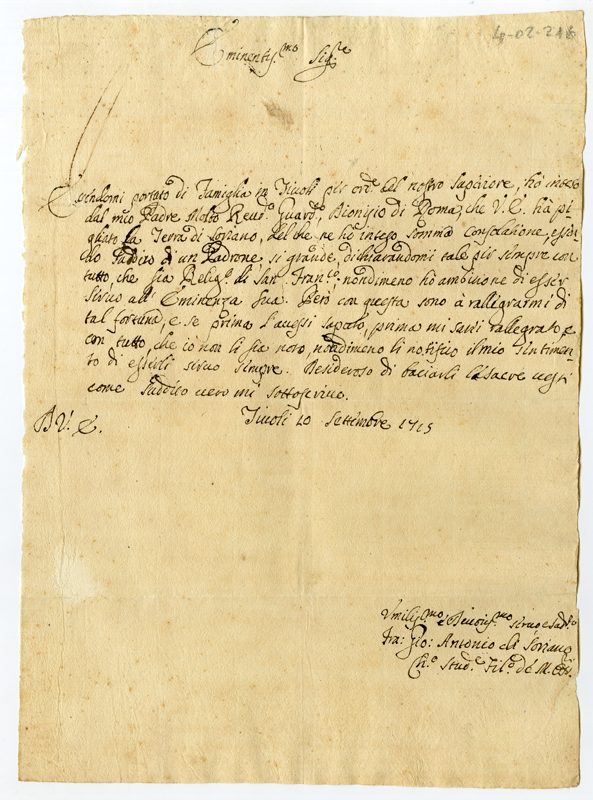 4-02-216
Eminentis.mo Sig.re
Essendomi portato di Famiglia in Tivoli per ord.e del nostro Superiore, hò inteso
dal mio Padre Molto Reud.o Guard.o Dionisio di Roma, che V. E. hà pi
gliato la Terra di Soriano, del che ne ho inteso somma Consolatione, essen
do Suddito di un Padrone si grande, dichiarandomi tale per sempre con
tutto, che sia Relig.o di San Fran.co, nondimeno hò ambitione di esser
servo all' Eminenza Sua. Però con questa sono à rallegrarmi di
tal fortuna, e se prima l'avessi saputo, prima mi sarei rallegrato, e
con tutto, che io non li sia noto, nondimeno li notifico il mio sentimen
to di esserli servo sempre. Desideroso di baciarli le sacre vesti
come suddito vero mi sottoscrivo.
D V. E. Tivoli 10 Settembre 1715
Umiliss.mo e Devotis.mo servo e Sud.to
Fra: Gio: Antonio da Soriano
Ch.o Stud.e Fil.o de M. Oss.